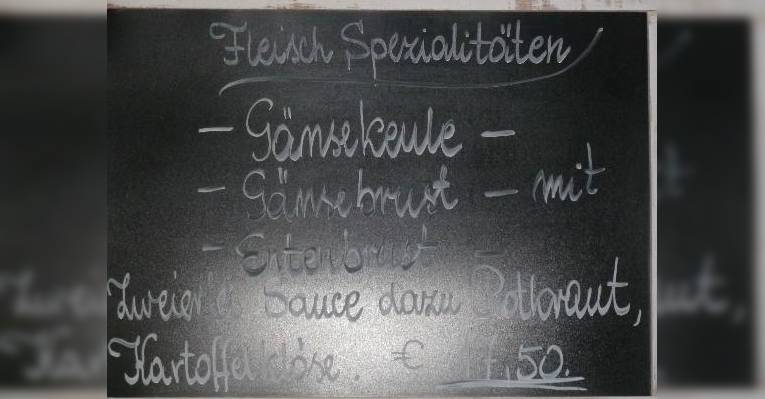 Fleisch Spezialitäten
- Gänsekeule -
- Gänsebrust - mit
- Entenbrust -
Zweierlei Sauce dazu Rotkraut,
Kartoffelklöse. € 17,50.